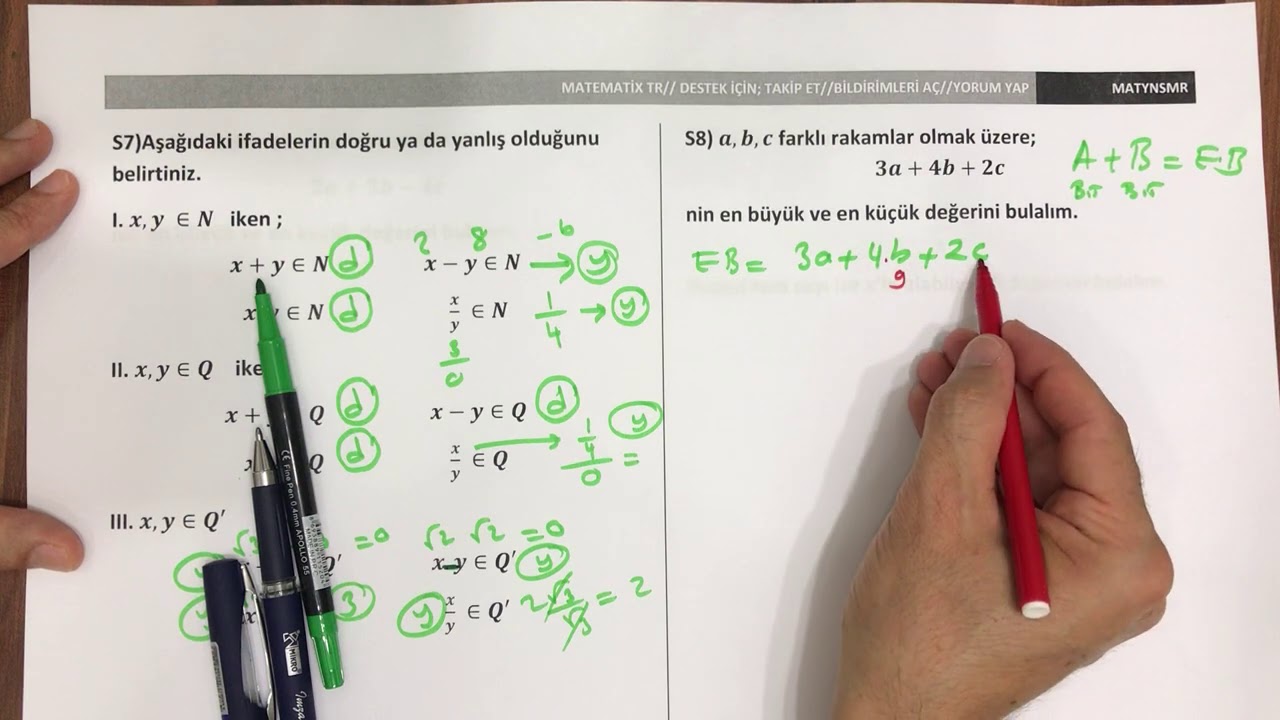 MATEMATİX TR// DESTEK İÇİN; TAKİP ET//BİLDİRİMLERİ AÇ//YORUM YAP
MATYNSMR
S7)Aşağıdaki ifadelerin doğru ya da yanlış olduğunu
belirtiniz.
I. x, y ∈ N iken ;
2 8 -6
x + y ∈ N d x − y ∈ N → y
x y ∈ N d x/y ∈ N 1/4 → y
3/0
II. x, y ∈ Q ike
x + Q d x − y ∈ Q d
Q d x/y ∈ Q → 1/4/0 = y
III. x, y ∈ Q′
= 0 √2 √2 = 0
Q′ x-y ∈ Q′ y
y x/y ∈ Q′ 2√3/√3 = 2
CE Fine Pen 0.4mm APOLLO 55
MIKRO
imza
S8) a, b, c farklı rakamlar olmak üzere;
3a + 4b + 2c
A + B = EB
nin en büyük ve en küçük değerini bulalım.
EB = 3a + 4.b + 2c
9